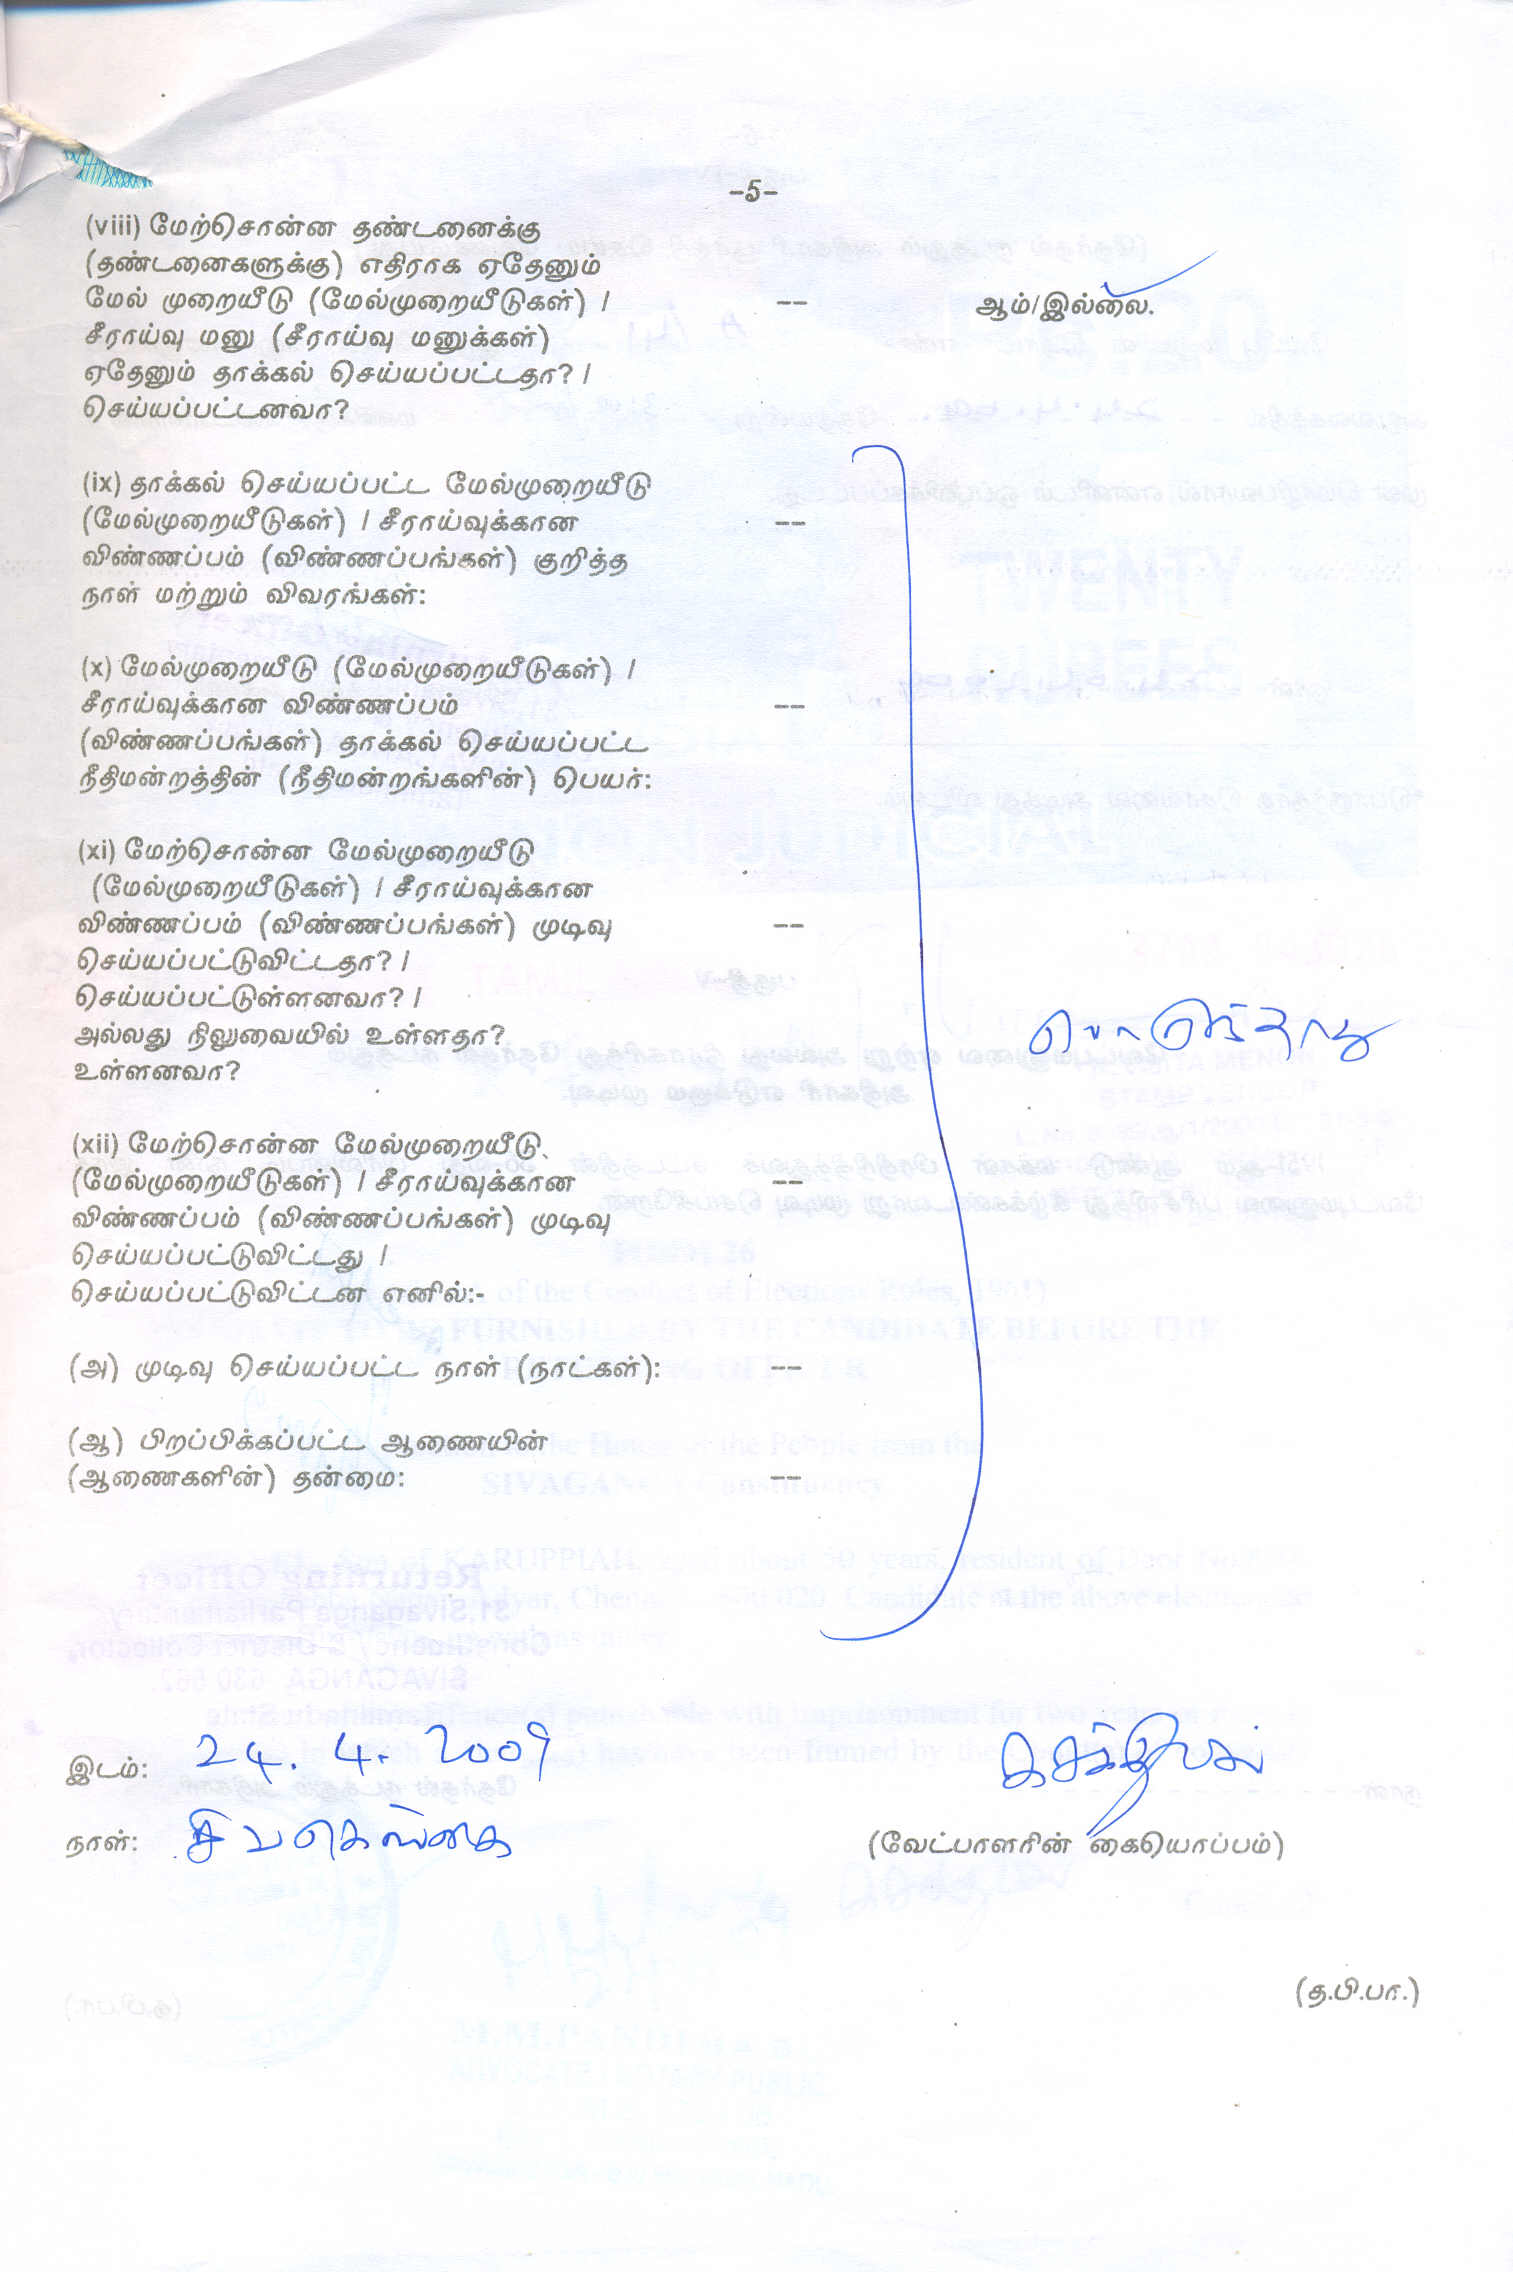 -5-
(viii) மேற்சொன்ன தண்டனைக்கு
(தண்டனைகளுக்கு) எதிராக ஏதேனும்
மேல் முறையீடு (மேல்முறையீடுகள்) / -- ஆம்/இல்லை.
சீராய்வு மனு (சீராய்வு மனுக்கள்)
ஏதேனும் தாக்கல் செய்யப்பட்டதா? /
செய்யப்பட்டனவா?
(ix) தாக்கல் செய்யப்பட்ட மேல்முறையீடு
(மேல்முறையீடுகள்) / சீராய்வுக்கான --
விண்ணப்பம் (விண்ணப்பங்கள்) குறித்த
நாள் மற்றும் விவரங்கள்:
(x) மேல்முறையீடு (மேல்முறையீடுகள்) /
சீராய்வுக்கான விண்ணப்பம் --
(விண்ணப்பங்கள்) தாக்கல் செய்யப்பட்ட
நீதிமன்றத்தின் (நீதிமன்றங்களின்) பெயர்:
(xi) மேற்சொன்ன மேல்முறையீடு
(மேல்முறையீடுகள்) / சீராய்வுக்கான
விண்ணப்பம் (விண்ணப்பங்கள்) முடிவு --
செய்யப்பட்டுவிட்டதா? /
செய்யப்பட்டுள்ளனவா? /
அல்லது நிலுவையில் உள்ளதா?
உள்ளனவா?
பொருந்தாது
(xii) மேற்சொன்ன மேல்முறையீடு
(மேல்முறையீடுகள்) / சீராய்வுக்கான --
விண்ணப்பம் (விண்ணப்பங்கள்) முடிவு
செய்யப்பட்டுவிட்டது /
செய்யப்பட்டுவிட்டன எனில்:-
(அ) முடிவு செய்யப்பட்ட நாள் (நாட்கள்): --
(ஆ) பிறப்பிக்கப்பட்ட ஆணையின்
(ஆணைகளின்) தன்மை: --
இடம்: 24. 4. 2009
நாள்: சிவகெங்கை (வேட்பாளரின் கையொப்பம்)
(த.பி.பா.)